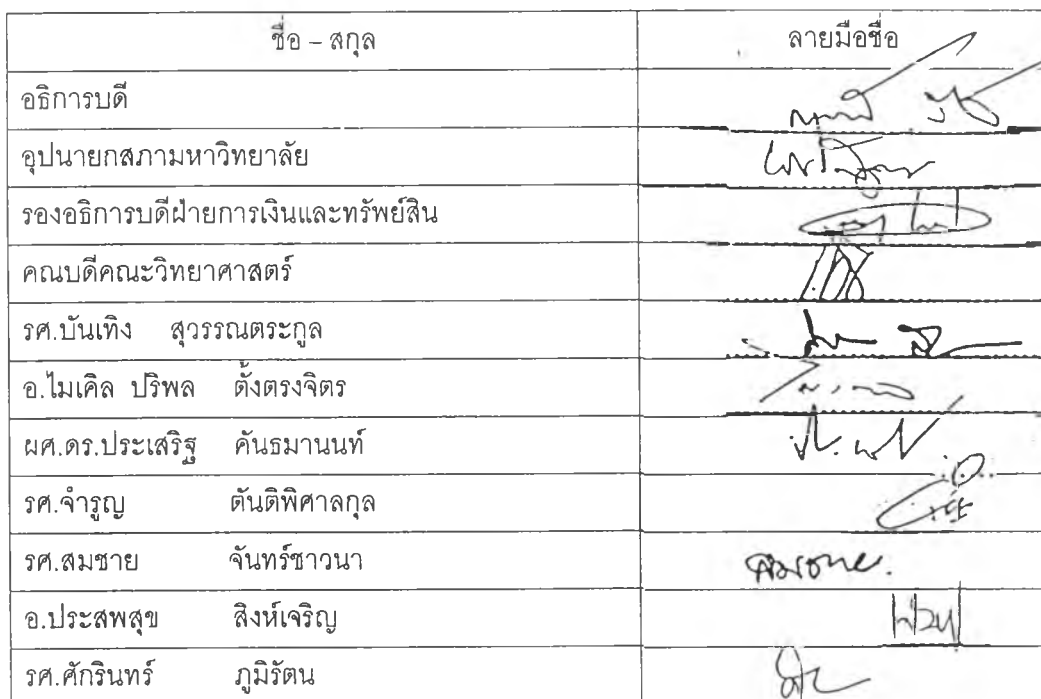 ชื่อ – สกุล ลายมือชื่อ
อธิการบดี
อุปนายกสภามหาวิทยาลัย
รองอธิการบดีฝ่ายการเงินและทรัพย์สิน
คณบดีคณะวิทยาศาสตร์
รศ.บันเทิง สุวรรณตระกูล
อ.ไมเคิล ปริพล ตั้งตรงจิตร
ผศ.ดร.ประเสริฐ คันธมานนท์
รศ.จำรูญ ตันติพิศาลกุล
รศ.สมชาย จันทร์ชาวนา สมชาย.
อ.ประสพสุข สิงห์เจริญ
รศ.ศักรินทร์ ภูมิรัตน